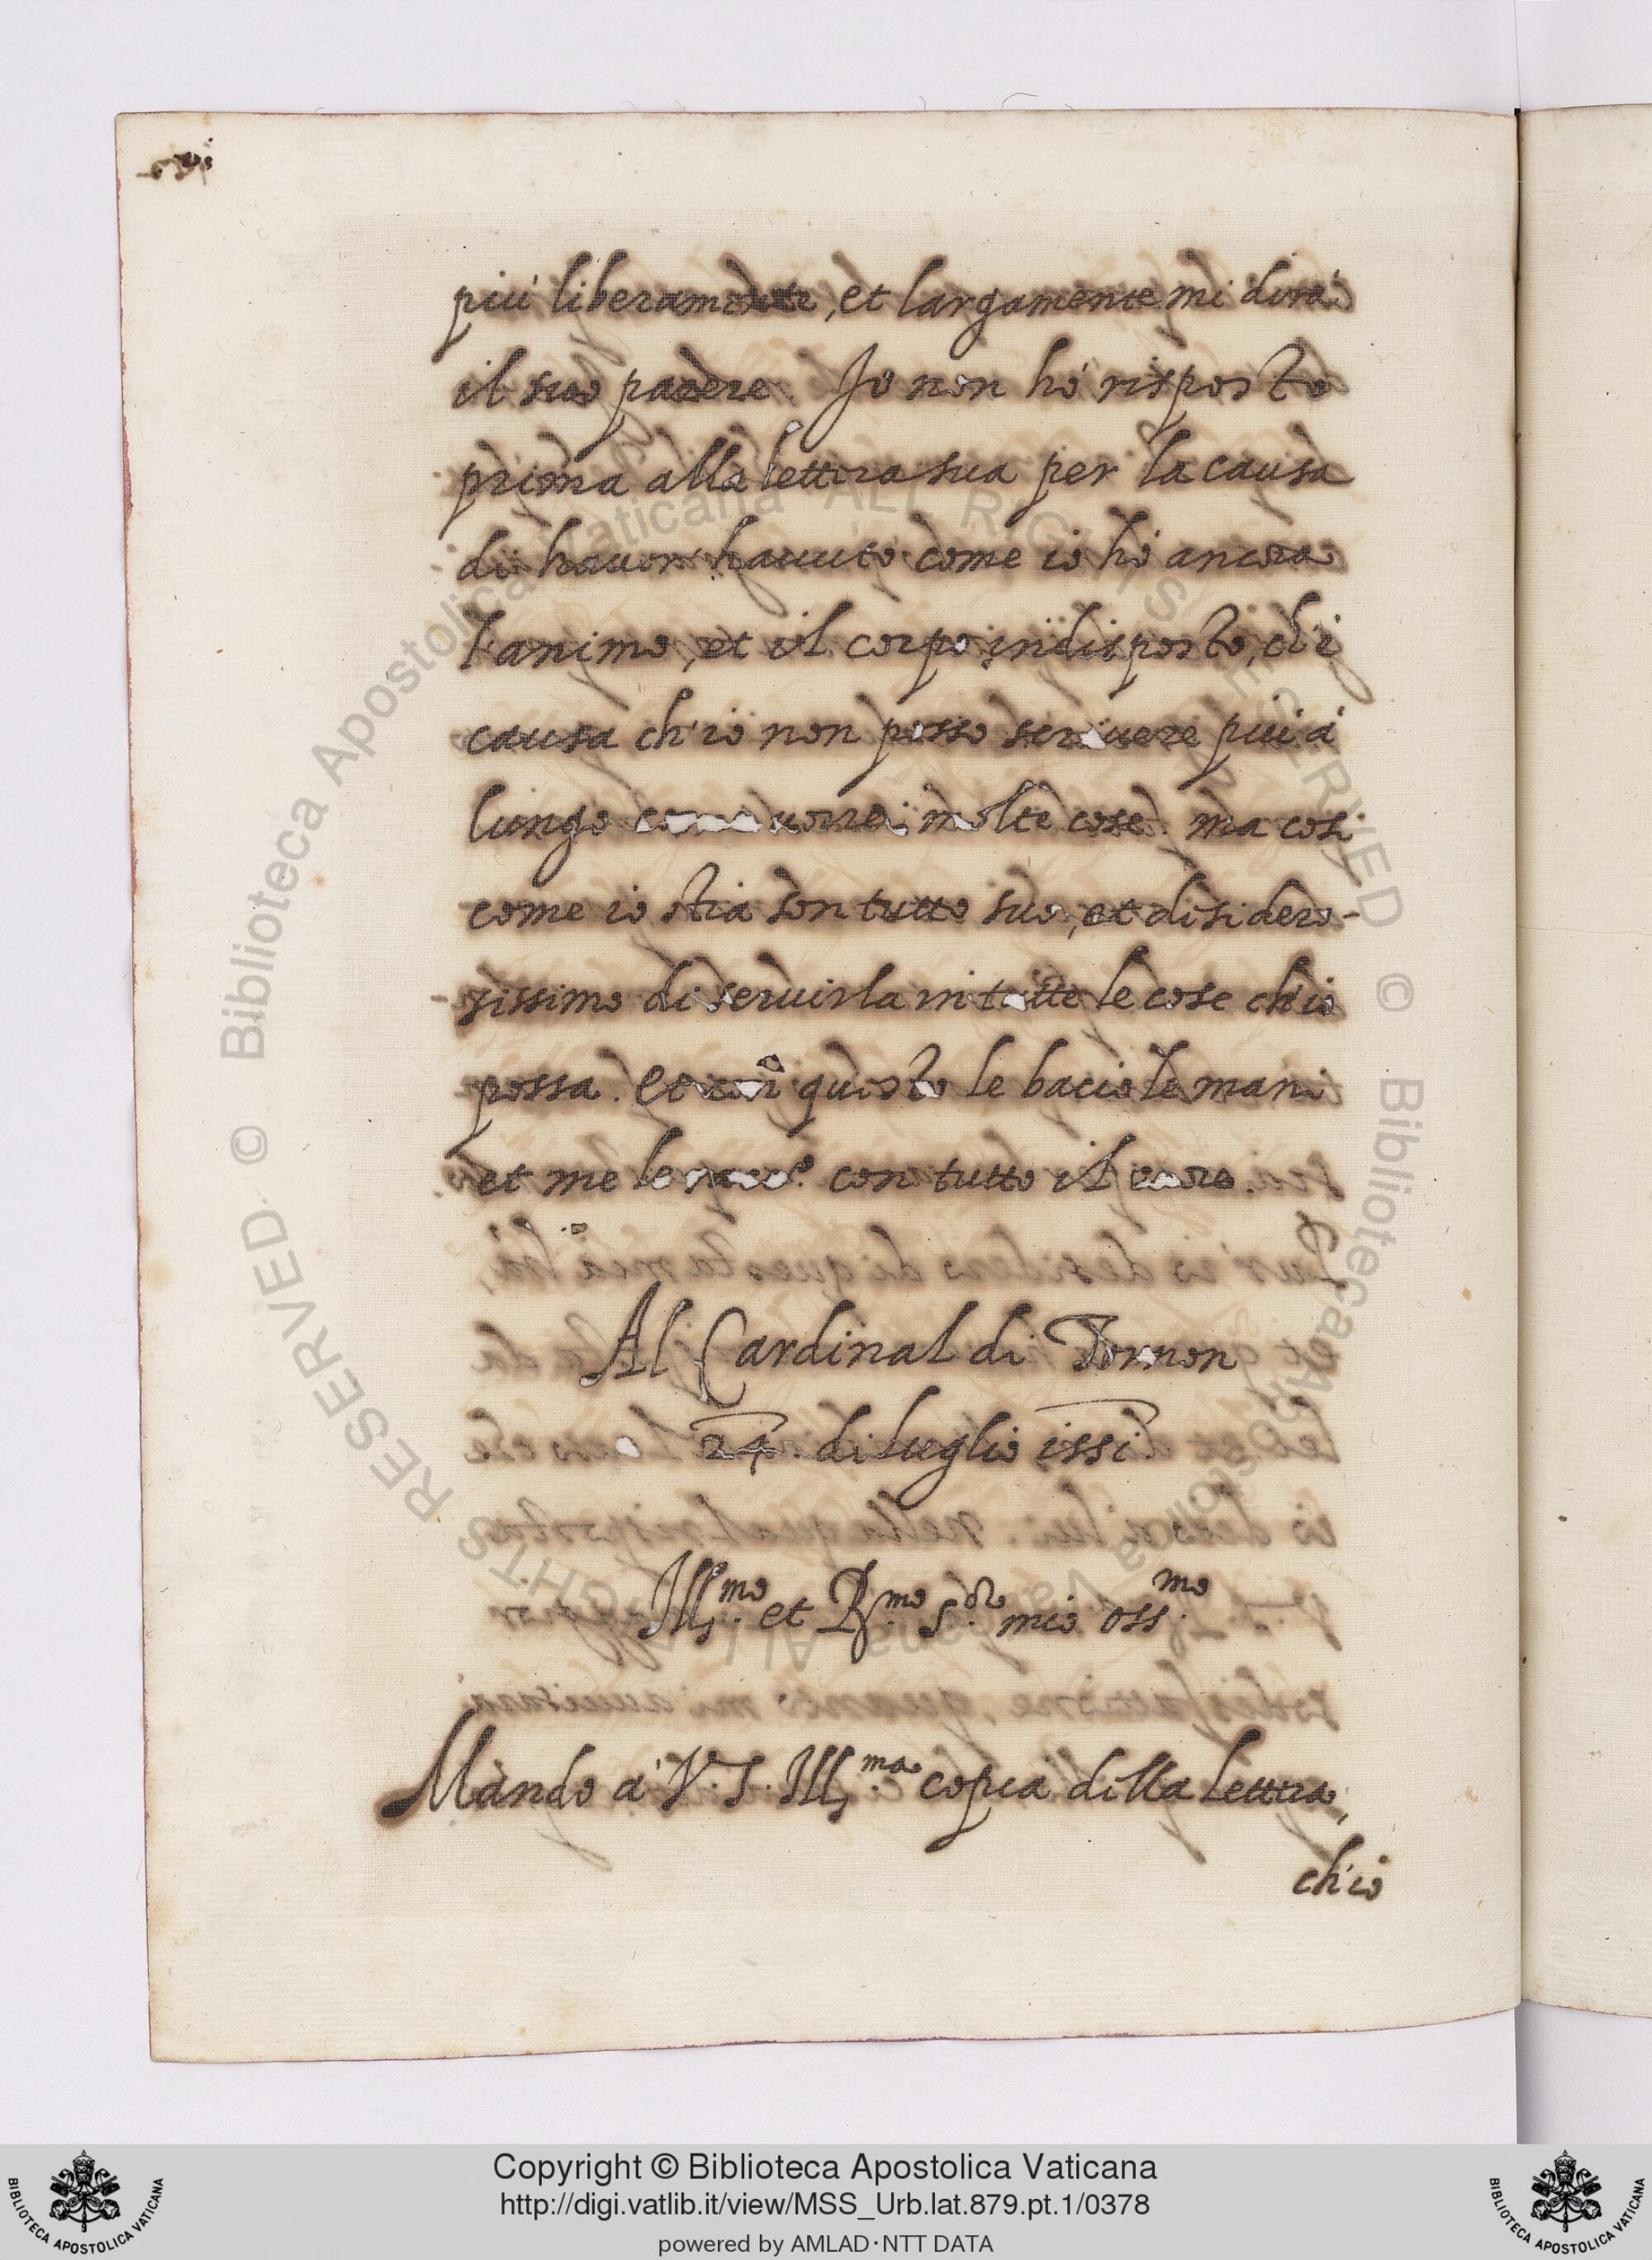 più liberamente, et largamente mi dirà
il suo parere. Io non hò risposto
prima alla lettera sua per la causa
di hauer hauuto come io hò ancora
l'animo, et il corpo indisposto, ch'è
causa ch'io non posso scriuere più à
lungo come uorrei molte cose. ma cosi
come io stia son tutto suo, et disidero-
-sissimo di seruirla in tutte le cose ch'io
possa. Et con questo le bacio le mani
et me le con tutto il cuore.
Al Cardinal di Tornon
24 di Luglio
Ill.mo et R.mo S.or mio oss.mo
Mando à V. S. Ill.ma copia della Lettera,
ch'io
Copyright © Biblioteca Apostolica Vaticana
http://digi.vatlib.it/view/MSS_Urb.lat.879.pt.1/0378
powered by AMLAD·NTT DATA
BIBLIOTECA APOSTOLICA VATICANA
BIBLIOTECA APOSTOLICA VATICANA
© Biblioteca Apostolica Vaticana ALL RIGHTS RESERVED
© Biblioteca Apostolica Vaticana ALL RIGHTS RESERVED